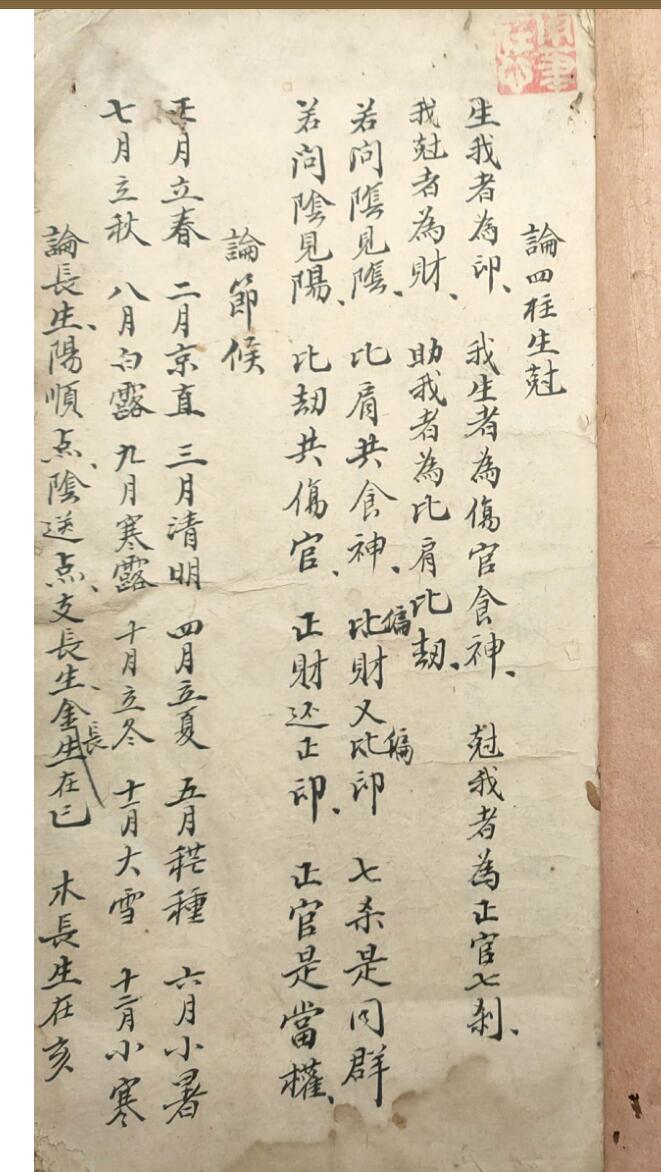 論四柱生尅
生我者為印、我生者為傷官食神、尅我者為正官七剎、
我尅者為財、助我者為比肩比刼、
若問陰見陰、比肩共食神、偏財又偏印 七杀是同群
若問陰見陽、比刼共傷官、正財还正印、正官是當權、
論節候
正月立春 二月京直 三月清明 四月立夏 五月秐種 六月小暑
七月立秋 八月白露 九月寒露 十月立冬 十一月大雪 十二月小寒
論長生、陽順点、陰送点、支長生、金長生在巳 木長生在亥